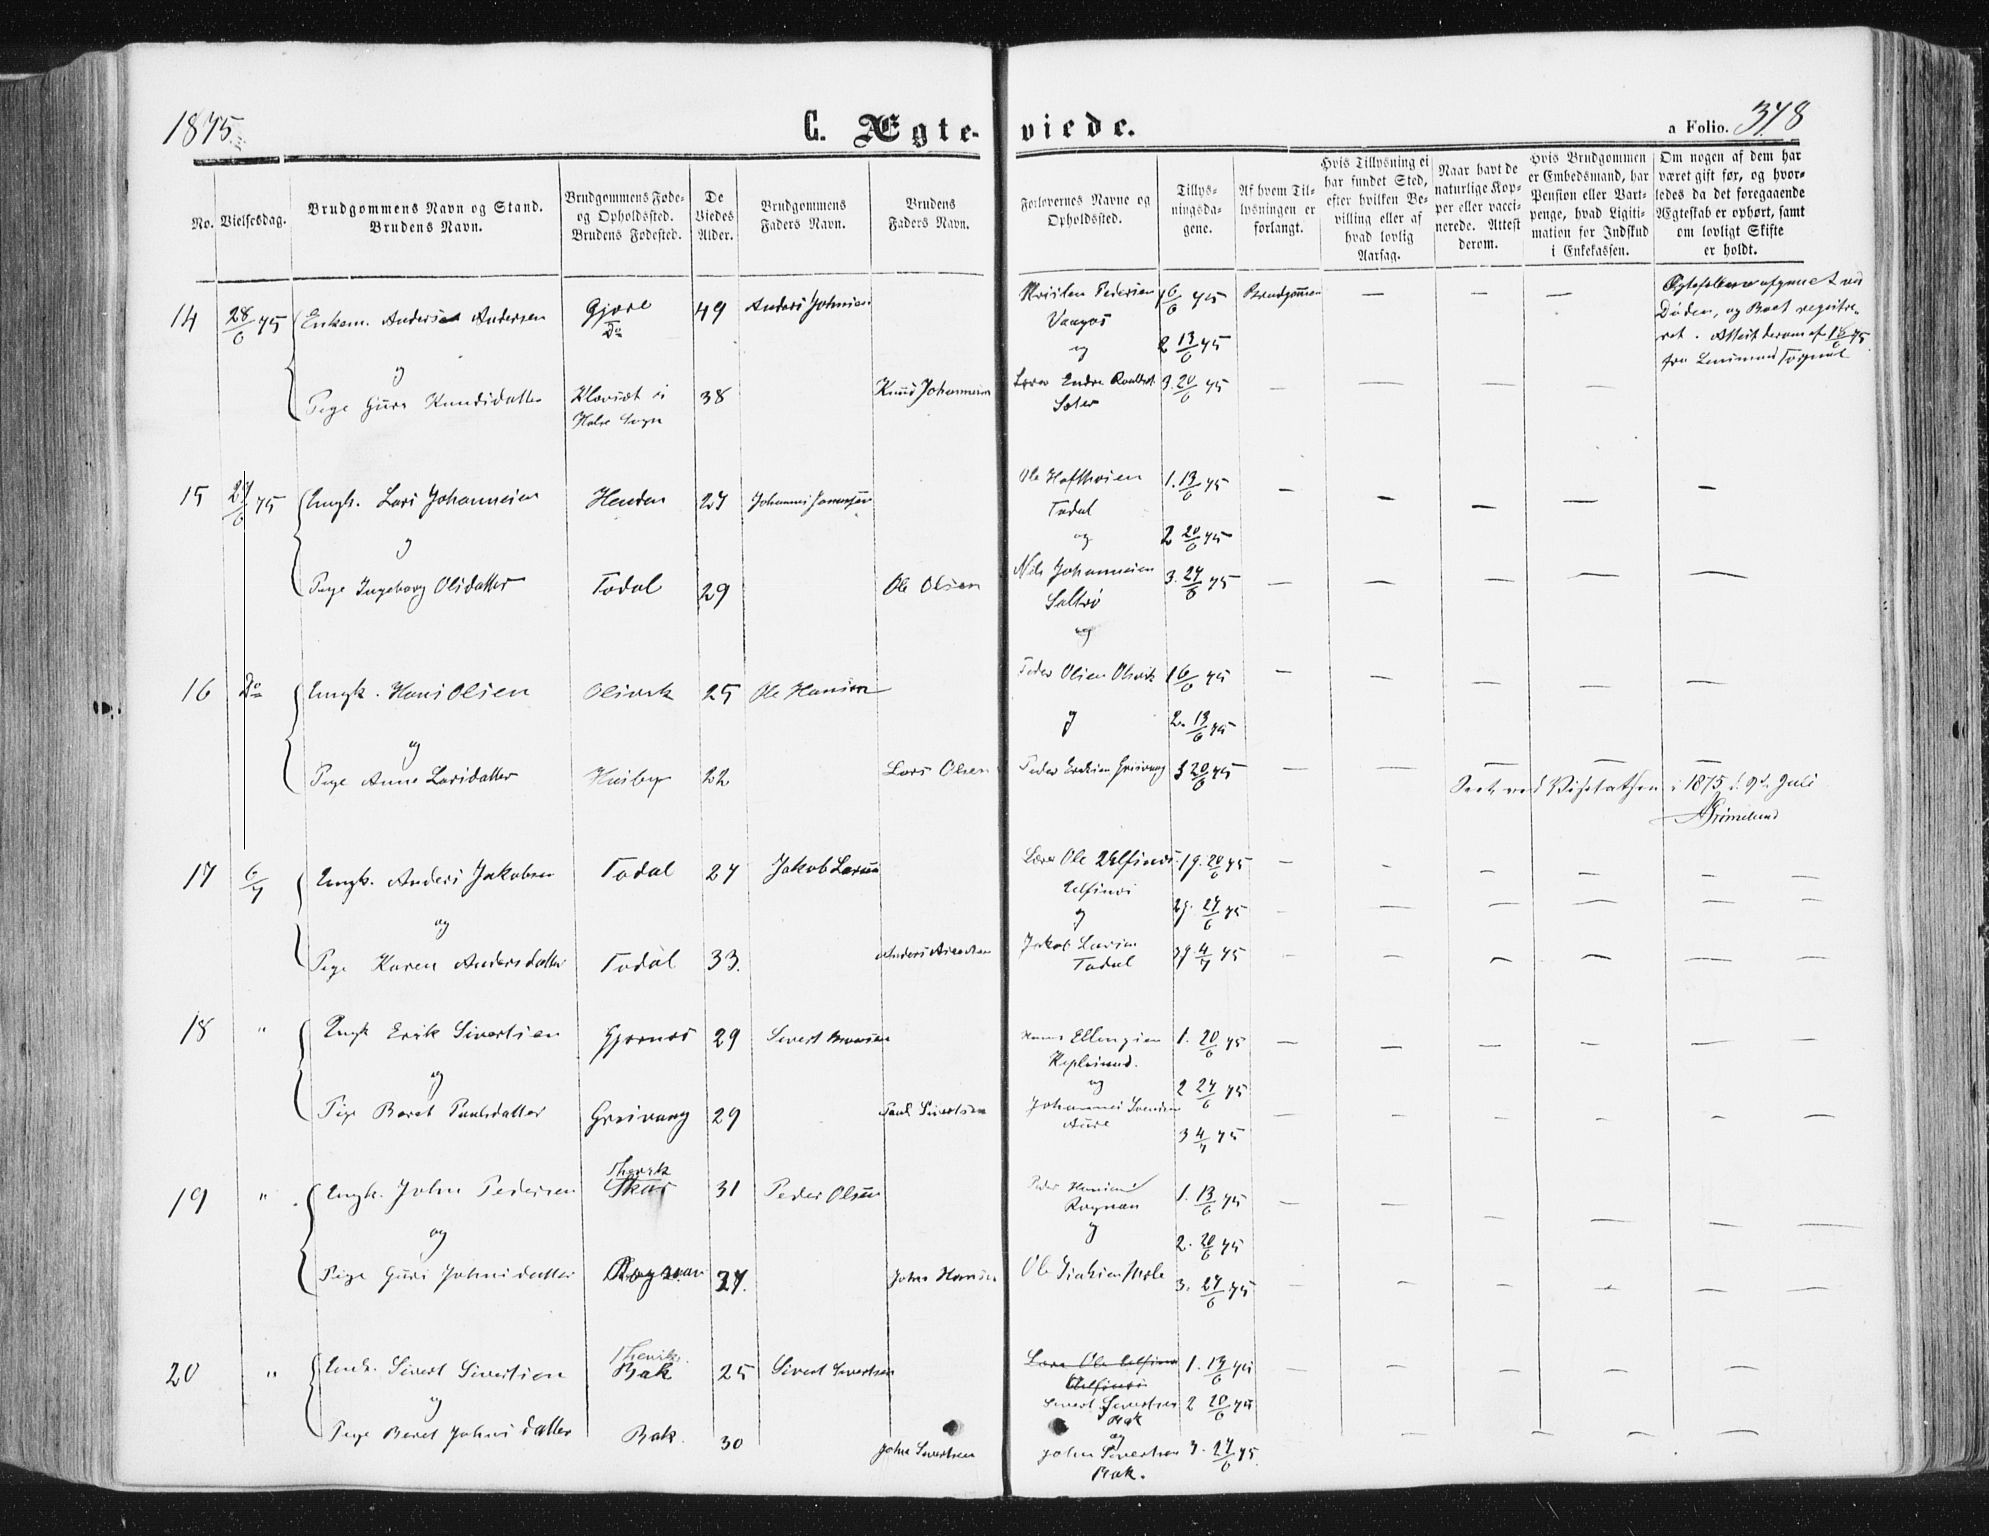 1875.
C. Ægteviede.
a Folio. 378
No.
Vielsesdag.
Brudgommens Navn og Stand.
Brudens Navn.
Brudgommens Føde-
og Opholdssted.
Brudens Fødested.
De
Viedes
Alder.
Brudgommens
Faders Navn.
Brudens
Faders Navn.
Forlovernes Navne og
Opholdssted.
Tillys-
ningsda-
gene.
Af hvem Til-
lysningen er
forlangt.
Hvis Tillysning ei
har fundet Sted,
efter hvilken Be-
villing eller af
hvad lovlig
Aarsag.
Naar havt de
naturlige Kop-
per eller vacci-
nerede. Attest
derom.
Hvis Brudgommen
er Embedsmand, har
Pension eller Vart-
penge, hvad Ligiti-
mation for Indskud
i Enkekassen.
Om nogen af dem har
været gift før, og hvor-
ledes da det foregaaende
Ægteskab er ophørt, samt
om lovligt Skifte
er holdt.
14 28/6 75 Enkem. Anders Andersen Gjøre 49 Anders Johnsen Kristen Pedersen 1 6/6 75 Brudgommen — — —
Do Vaagos
og 2 13/6 75
og
Pige Guro Knudsdatter 38 Knud Johannesen Lærer Endre 3. 20/6 75 — — — —
Halse Sogn Sæter
Døden, og Boet registre-
ret. Attest derom af 18/6 75
fra Lensmand
15 27/6 75 Ungk. Lars Johannesen Henden 27 Johannes Ole 1. 13/6 75 — — — — —
Todal
og og 2 20/6 75
Pige Ingeborg Olsdatter Todal 29 Ole Olsen Nils Johannesen 3. 27/6 75 — — — — —
og
16 Do Ungk. Hans Olsen Olsvik 25 Ole Hansen Peder Olsen Olsvik 1 6/6 75 — — — — —
og og 2. 13/6 75
Pige Anne Larsdatter Husby 22 Lars Olsen Peder Eriksen Grisvaag 3 20/6 75 — — — — —
Seet ved Visitatsen i 1875 d. 9de Juli
Grimelund
17 6/7 Ungk. Anders Jakobsen Todal 27 Jakob Larsen Lærer Ole Ulfsnes 1g. 20/6 75 — — — — — —
Ulfsnes
og og 2g. 27/6 75 — — — — — —
Pige Karen Andersdatter Todal 33. Anders Jakob Larsen 3g 4/7 75 — — — — — —
Todal
18 " Ungk Erik Sivertsen Gjernes 29 Sivert Hans Ellingsen 1. 20/6 75 — — — — — —
og og 2 27/6 75
Pige Beret Paulsdatter Grisvaag 29 Paul Sivertsen Johannes Svendsen — — — — — —
Aure 3 4/7 75
19 " Ungk. John Pedersen Skar 31 Peder Olsen Peder Hansen 1. 13/6 75 — — — — — —
Rognan
og og 2. 20/6 75
Pige Guri Johnsdatter Rognan 27. John Hansen Ole 3. 27/6 75 — — — — — —
20 " Ungk. Sivert Sivertsen Bak 25 Sivert Sivertsen Lærer Ole Ulfsnes 1. 13/6 75 — — — — — —
Ulfsnes
og Sivert Sivertsen 2 20/6 75
Bak
og
Pige Beret Johnsdatter Bak. 30 John Sivertsen John Sivertsen 3. 27/6 75. — — — — —
Bak.